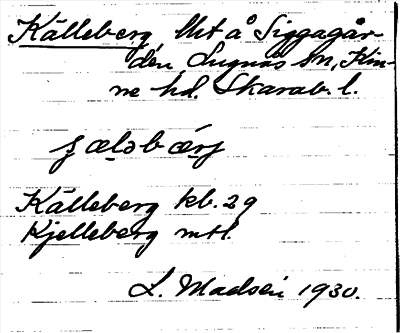 Källeberg Utt å Siggagår-
den Lugnås sn, Kin-
ne hd. Skarab. l.
ʃæləbærj
Källeberg kb. 29
Kjelleberg mtl.
L. Madsen 1930.